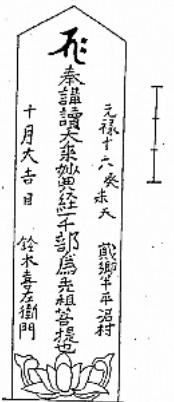 元禄十六癸未天　貳郷半平沼村
奉講讀大乗妙典経一千部為先祖菩提也
十月大吉日　鈴木喜左衛門